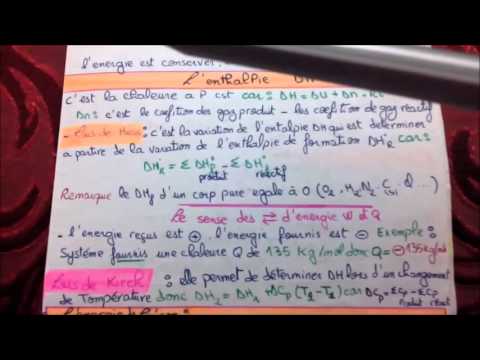 l'energie est conserver.
L'enthalpie DH
c'est la chaleure a P cst car: DH = DU + Dn - RT
Dn: c'est le coefition des gaz produit - les coefition de gaz reactif
- Lus de Hess: c'est la variation de l'entalpie DH qui est determiner
a partire de la variation de l'enthalpie de formation DH°R car:
DH°R = Σ DH°f - Σ DH°f
produit reactif
Remarque le DHf d'un corp pure egale à 0 (O2, H2, N2,
Le sense des ⇄ d'energie W d Q
- l'energie reçus est ⊕. l'energie fournis est ⊖ Exemple:
Systéme fournis une chaleure Q de 135 Kg/mol donc Q= ⊖135 kg/mol
Lus de Kirck: elle permet de déterminer DH lors d'un changement
de Température donc DH2 = DH1 + DCp (T2-T1) car DCp = ΣCp - ΣCp
Produit réact